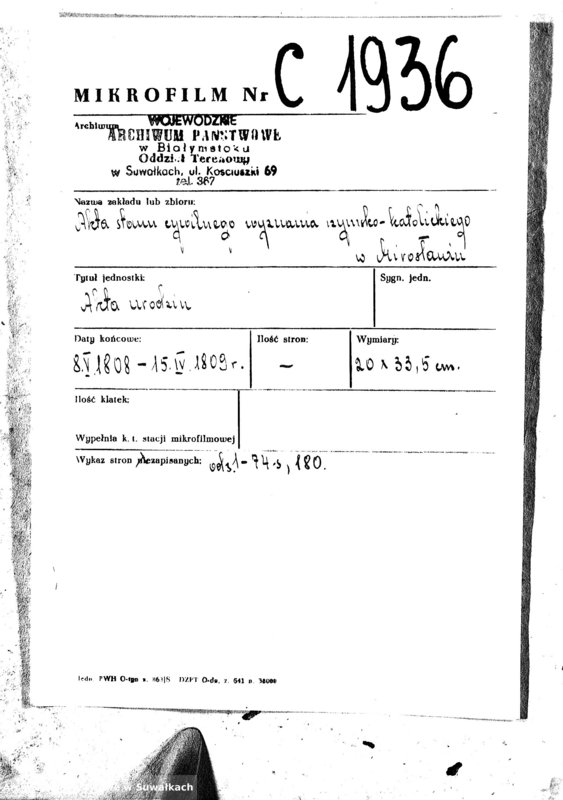 MIKROFILM Nr C 1936
Archiwum WOJEWÓDZKIE
ARCHIWUM PAŃSTWOWE
w Białymstoku
Oddział Terenowy
w Suwałkach, ul. Kościuszki 69
tel. 367
Nazwa zakładu lub zbioru:
Akta stanu cywilnego wyznania rzymsko-katolickiego
w Mirosławiu
Tytuł jednostki:
Sygn. jedn.
Akta urodzin
Daty końcowe:
Ilość stron:
Wymiary:
8.V 1808 – 15.IV 1809 r.
—
20 x 33,5 cm.
Ilość klatek:
Wypełnia k. t. stacji mikrofilmowej
Wykaz stron niezapisanych: od s. 1 – 74-s, 180.
Jedn. PWH O-tgn z. 863/S DZPT O-dz, z. 641 n. 30000
w Suwałkach